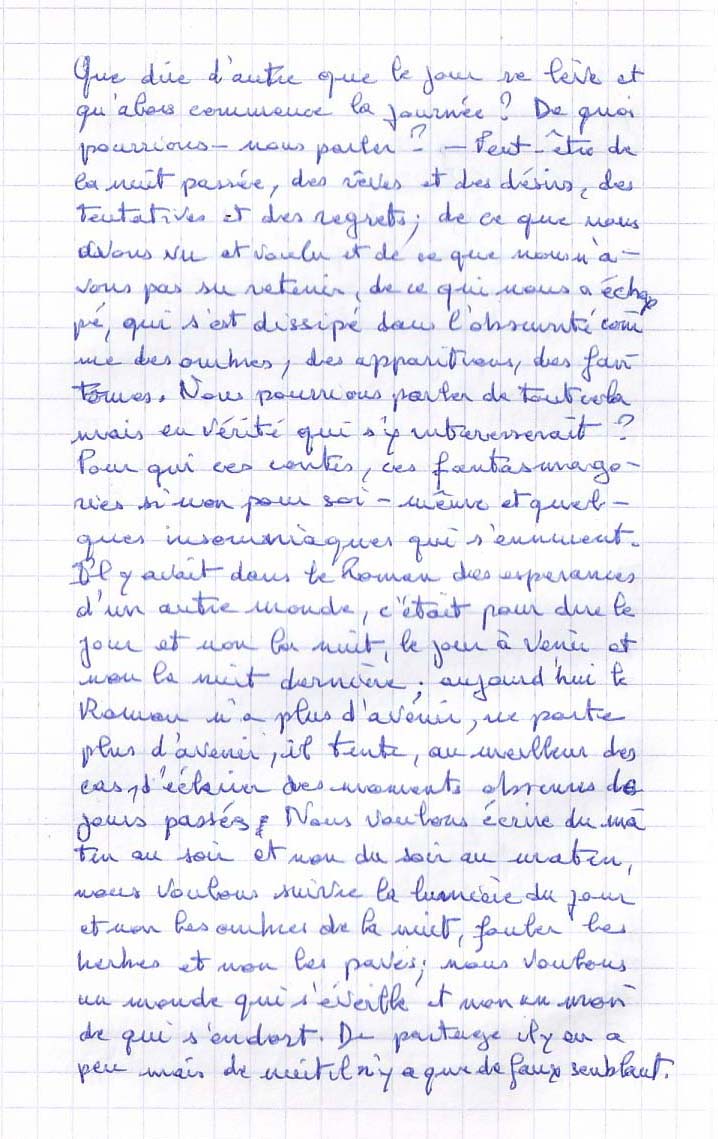 Que dire d'autre que le jour se lève et
qu'alors commence la journée ? De quoi
pourrions-nous parler ? — Peut-être de
la nuit passée, des rêves et des désirs, des
tentatives et des regrets ; de ce que nous
avons vu et voulu et de ce que nous n'a-
vons pas su retenir, de ce qui nous a échap
pé, qui s'est dissipé dans l'obscurité com
me des ombres, des apparitions, des fan
tomes. Nous pourrions parler de tout cela
mais en vérité qui s'y interesserait ?
Pour qui ces contes, ces fantasmago-
ries si non pour soi-même et quel-
ques insomniaques qui s'ennuient.
Il y avait dans le Roman des esperances
d'un autre monde, c'était pour dire le
jour et non la nuit, le jour à venir et
non la nuit dernière ; aujourd'hui le
Roman n'a plus d'avenir, ne porte
plus d'avenir, il tente, au meilleur des
cas, d'éclairer des moments obscurs de
jours passés. Nous voulons écrire du ma
tin au soir et non du soir au matin,
nous voulons suivre la lumière du jour
et non les ombres de la nuit, fouler les
herbes et non les pavés ; nous voulons
un monde qui s'éveille et non un mon
de qui s'endort. De partage il y en a
peu mais de nuit il n'y a que de faux semblant.